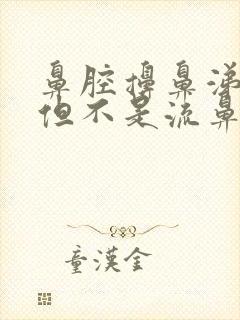 鼻腔擤鼻涕
但不是流鼻
童漢金